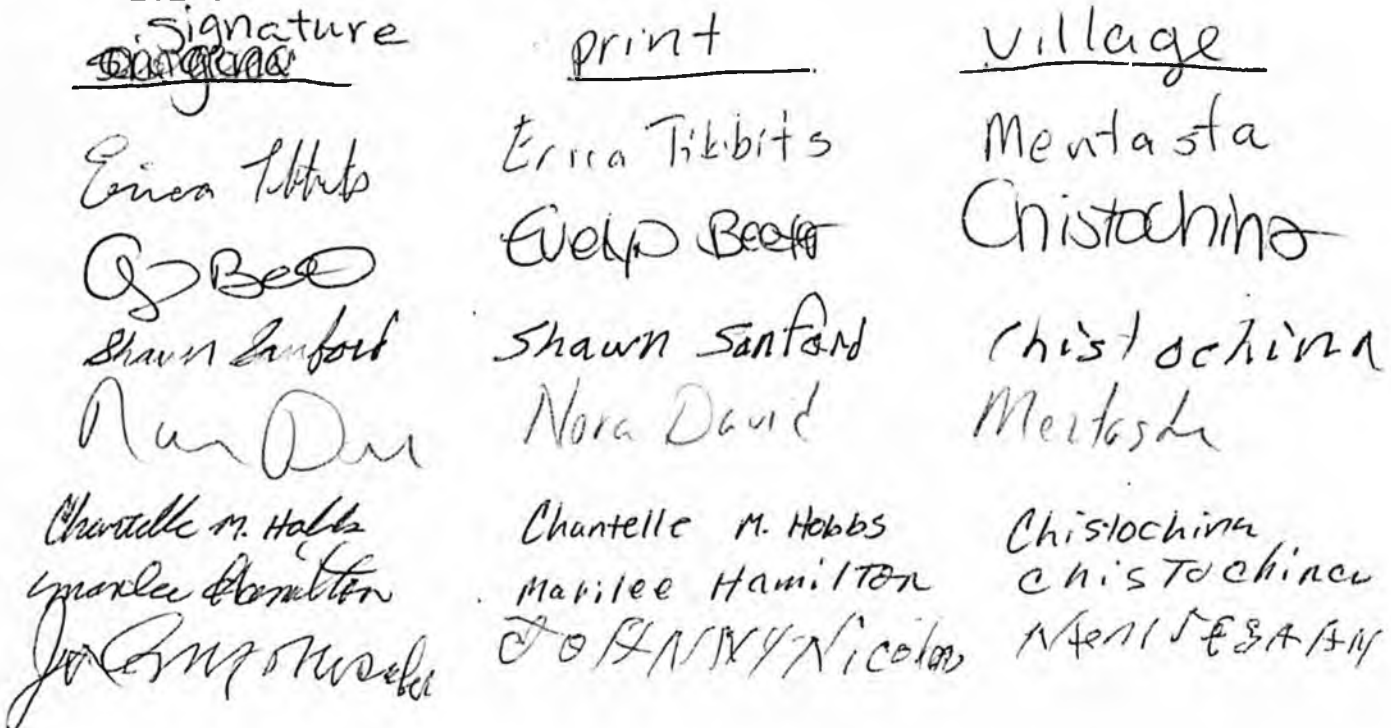 signature print village
Erica Tibbits Erica Tibbits Mentasta
Bee Evelyn Beeter Chistochina
Shawn Sanford Shawn Sanford Chistochina
Nora David Mentasta
Chantelle M. Hobbs Chantelle M. Hobbs Chistochina
Marilee Hamilton Marilee Hamilton Chistochina
JOHNNY Nicolas